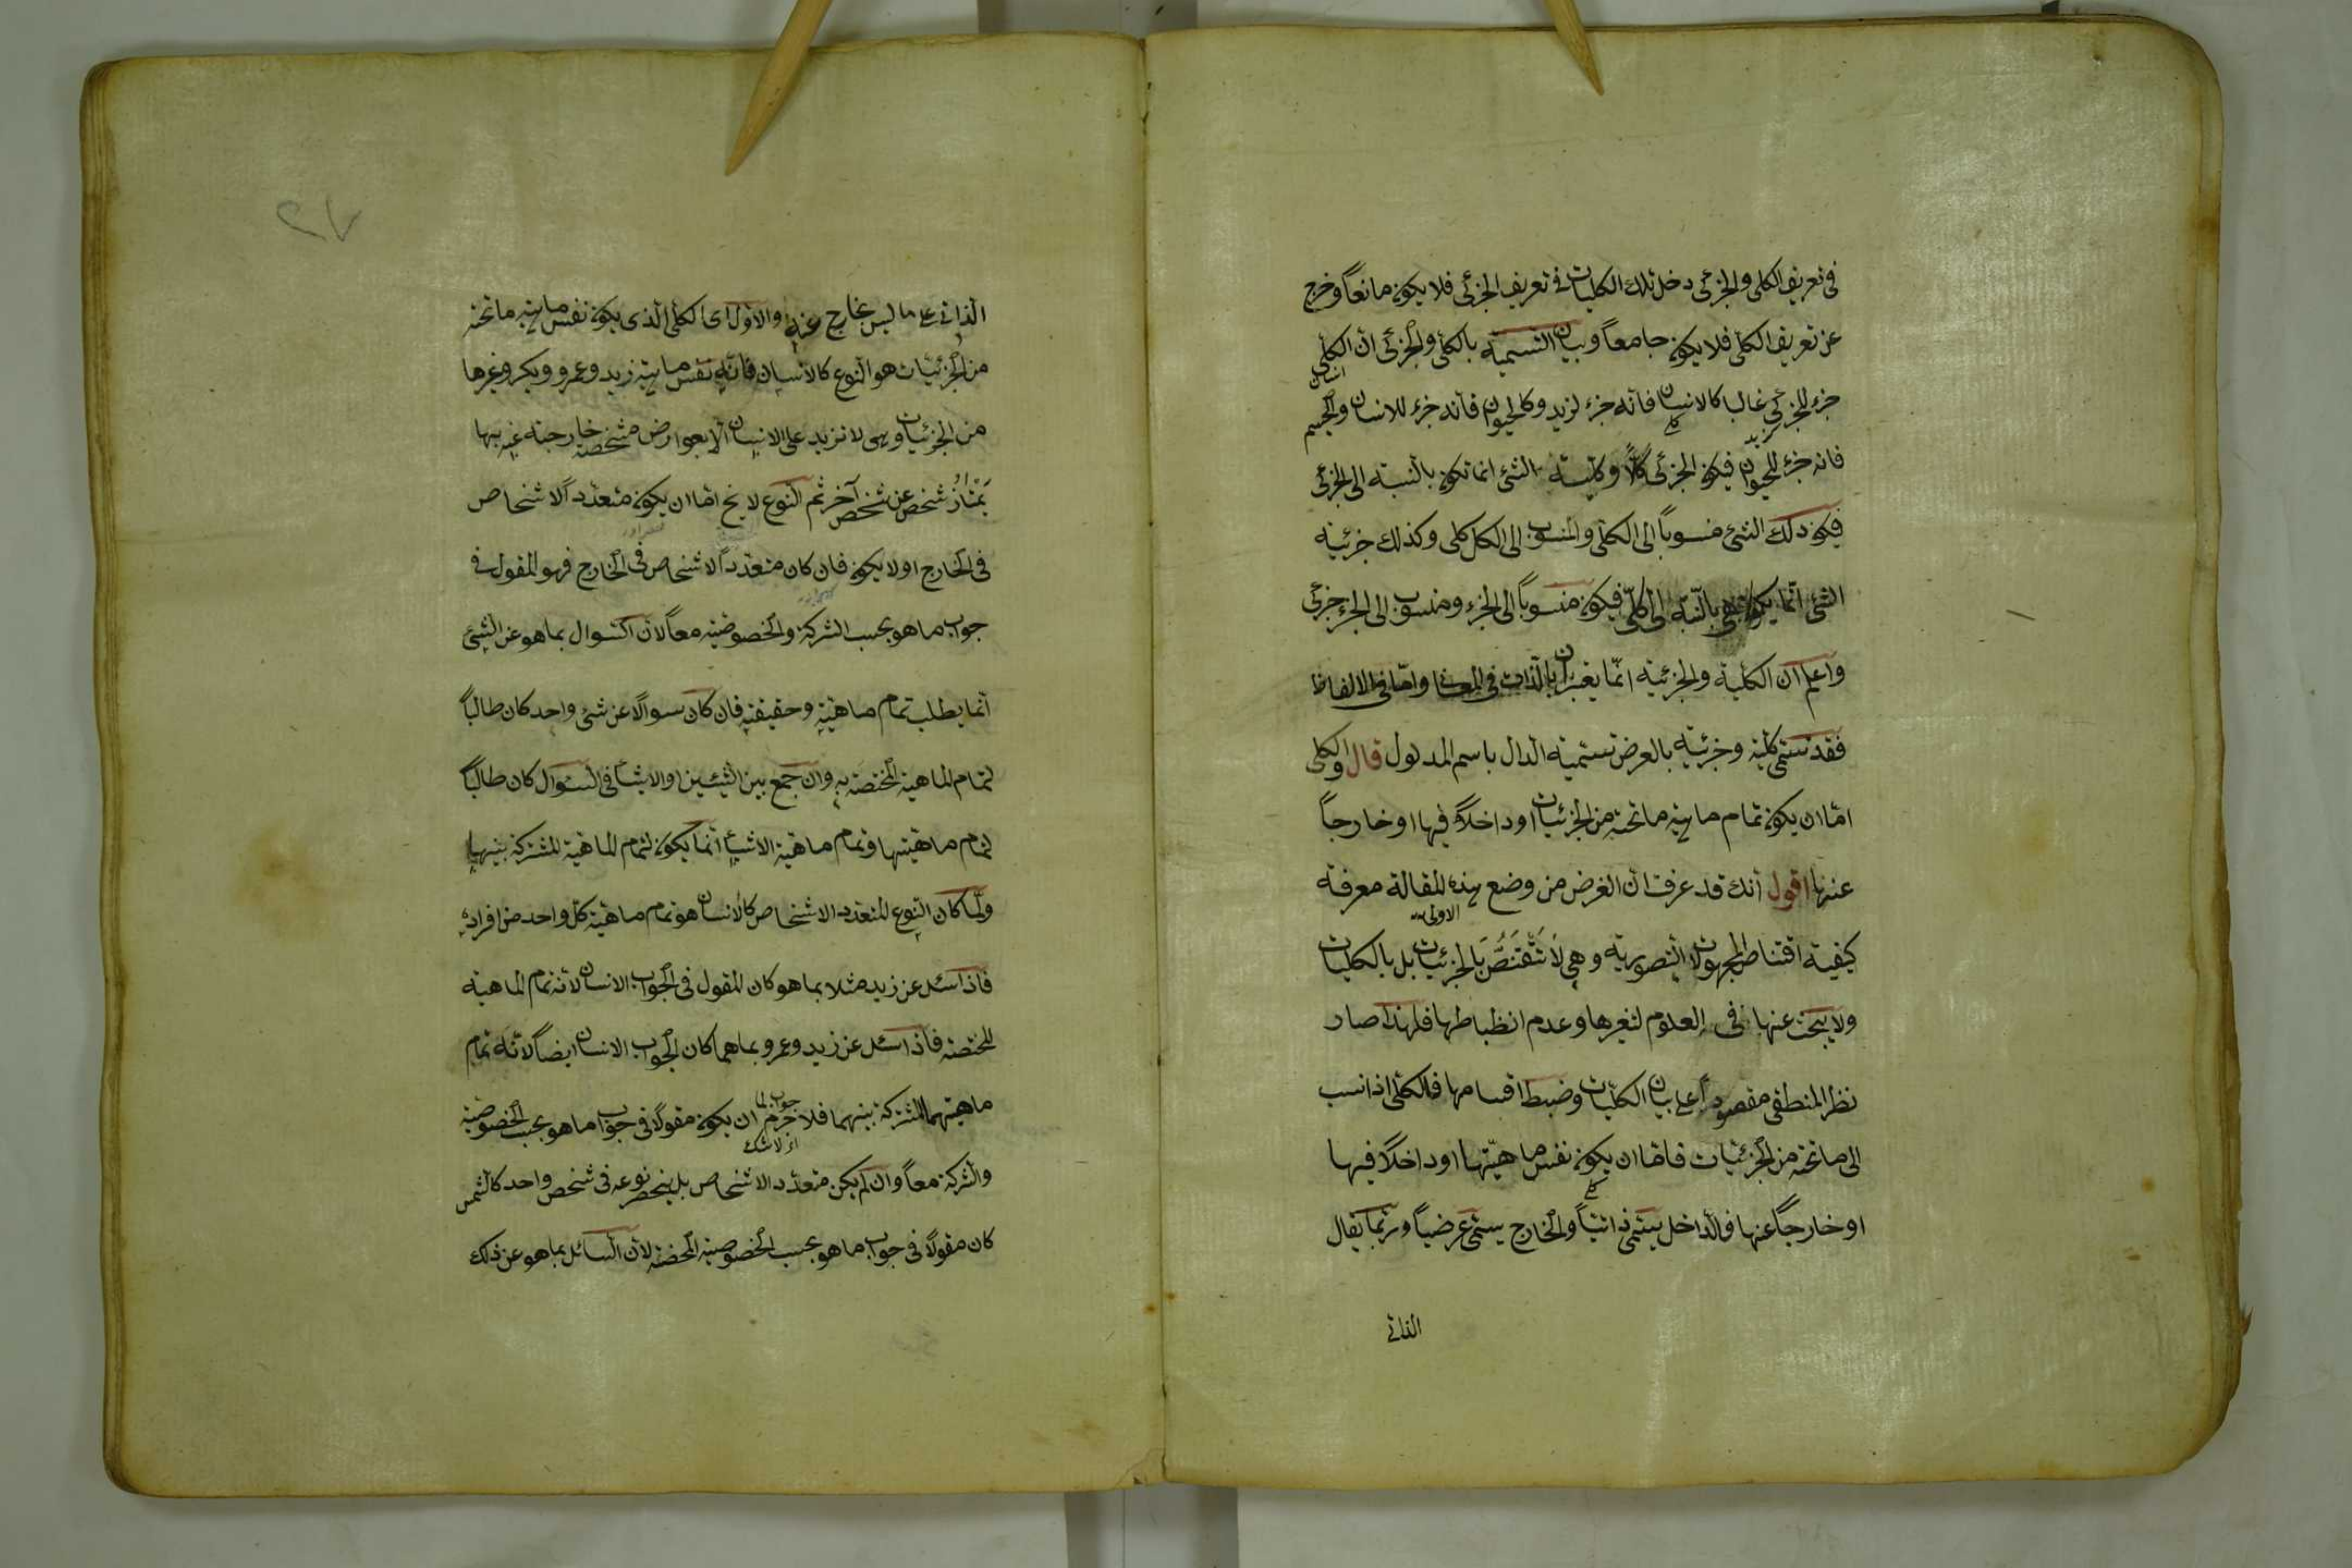 فى تعريف الكلى والجزئى دخل تلك الكليات فى تعريف الجزئى فلا يكون مانعاً وخرج
عن تعريف الكلى فلا يكون جامعاً وبيان التسمية بالكلى والجزئى ان الكلى
انسان
جزء للجزئى غالبا كالانسان فانه جزء لزيد وكالحيوان فانه جزء للانسان والجسم
فانه جزء للحيوان فيكون الجزئى كلاً وكلية الشئ انما تكون بالنسبة الى الجزئى
فيكون ذلك الشئ منسوباً الى الكل والمنسوب الى الكل كلى وكذلك جزئية
الشئ انما يكون بالنسبة الى الكلى فيكون منسوباً الى الجزء ومنسوب الى الجزء جزئى
واعلم ان الكلية والجزئية انما يعتبران بالذات فى المعانى واما فى الالفاظ
فقد تسمى كلية وجزئية بالعرض تسمية الدال باسم المدلول قال والكلى
اما ان يكون تمام ماهية ما تحته من الجزئيات او داخلاً فيها او خارجاً
عنها اقول انك قد عرفت ان الغرض من وضع هذه المقالة معرفة
الاولى
كيفية اقتناص المجهولات التصورية وهى لا تقتنص بالجزئيات بل بالكليات
ولا يبحث عنها فى العلوم لتغيرها وعدم انظباطها فلهذا صار
نظر المنطقى مقصوراً على بيان الكليات وضبط اقسامها فالكلى اذا نسب
الى ما تحته من الجزئيات فاما ان يكون نفس ماهيتها او داخلاً فيها
او خارجاً عنها فالداخل يسمى ذاتياً والخارج يسمى عرضياً وربما يقال
الذاتى
الذاتى على ما ليس بخارج عنه والاول اى الكلى الذى يكون نفس ماهية ما تحته
من الجزئيات هو النوع كالانسان فانه نفس ماهية زيد وعمرو وبكر وغيرها
من الجزئيات وهى لا تزيد على الانسان الا بعوارض مشخصة خارجة عنه بها
يَمْتازُ شخص عن شخص آخر ثم النوع لا يخ اما ان يكون متعدد الاشخاص
فى الخارج او لا يكون فان كان متعدد الاشخاص فى الخارج فهو المقول فى
جواب ما هو بحسب الشركة والخصوصية معاً لان السوال بما هو عن الشئ
انما يطلب تمام ماهيته وحقيقته فان كان سوالاً عن شئ واحد كان طالباً
لتمام الماهية المختصة به وان جمع بين الشيئين او الاشيآ فى السئوال كان طالباً
لتمام ماهيتها وتمام ماهية الاشيآ انما يكون لتمام الماهية المشتركة بينها
ولما كان النوع المتعدد الاشخاص كالانسان هو تمام ماهية كل واحد من افراده
فاذا سئل عن زيد مثلا بما هو كان المقول فى الجواب الانسان لانه تمام الماهية
المختصة فاذا سئل عن زيد وعمرو بما هما كان الجواب الانسان ايضاً لانه تمام
جواب لما
ماهيتهما المشتركة بينهما فلا جرم ان يكون مقولاً فى جواب ما هو بحسب الخصوصية
اى لا شك
والشركة معاً وان لم يكن متعدد الاشخاص بل ينحصر نوعه فى شخص واحد كالشمس
كان مقولاً فى جواب ما هو بحسب الخصوصية المحضة لان السائل بما هو عن ذلك